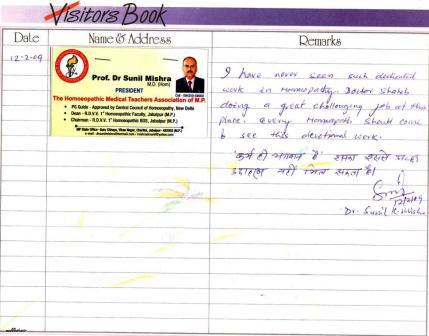 Visitors Book
Date
Name & Address
Remarks
12-2-09
Prof. Dr Sunil Mishra
M.D. (Hom)
PRESIDENT
The Homoeopathic Medical Teachers Association of M.P.
PG Guide - Approved by Central Council of Homoeopathy, New Delhi
Dean - R.D.V.V. 1st Homoeopathic Faculty, Jabalpur (M.P.)
Chairman - R.D.V.V. 1st Homoeopathic BOS, Jabalpur (M.P.)
I have never seen such dedicated
work in Homoeopathy. Doctor Shaheb
doing a great challenging job at this
place. every Homoeopath should come
& see this devotional work.
'कर्म ही भगवान है' इसका इससे अच्छा
उदाहरण नहीं मिल सकता है।
12/2/09
Dr. Sunil K. Mishra